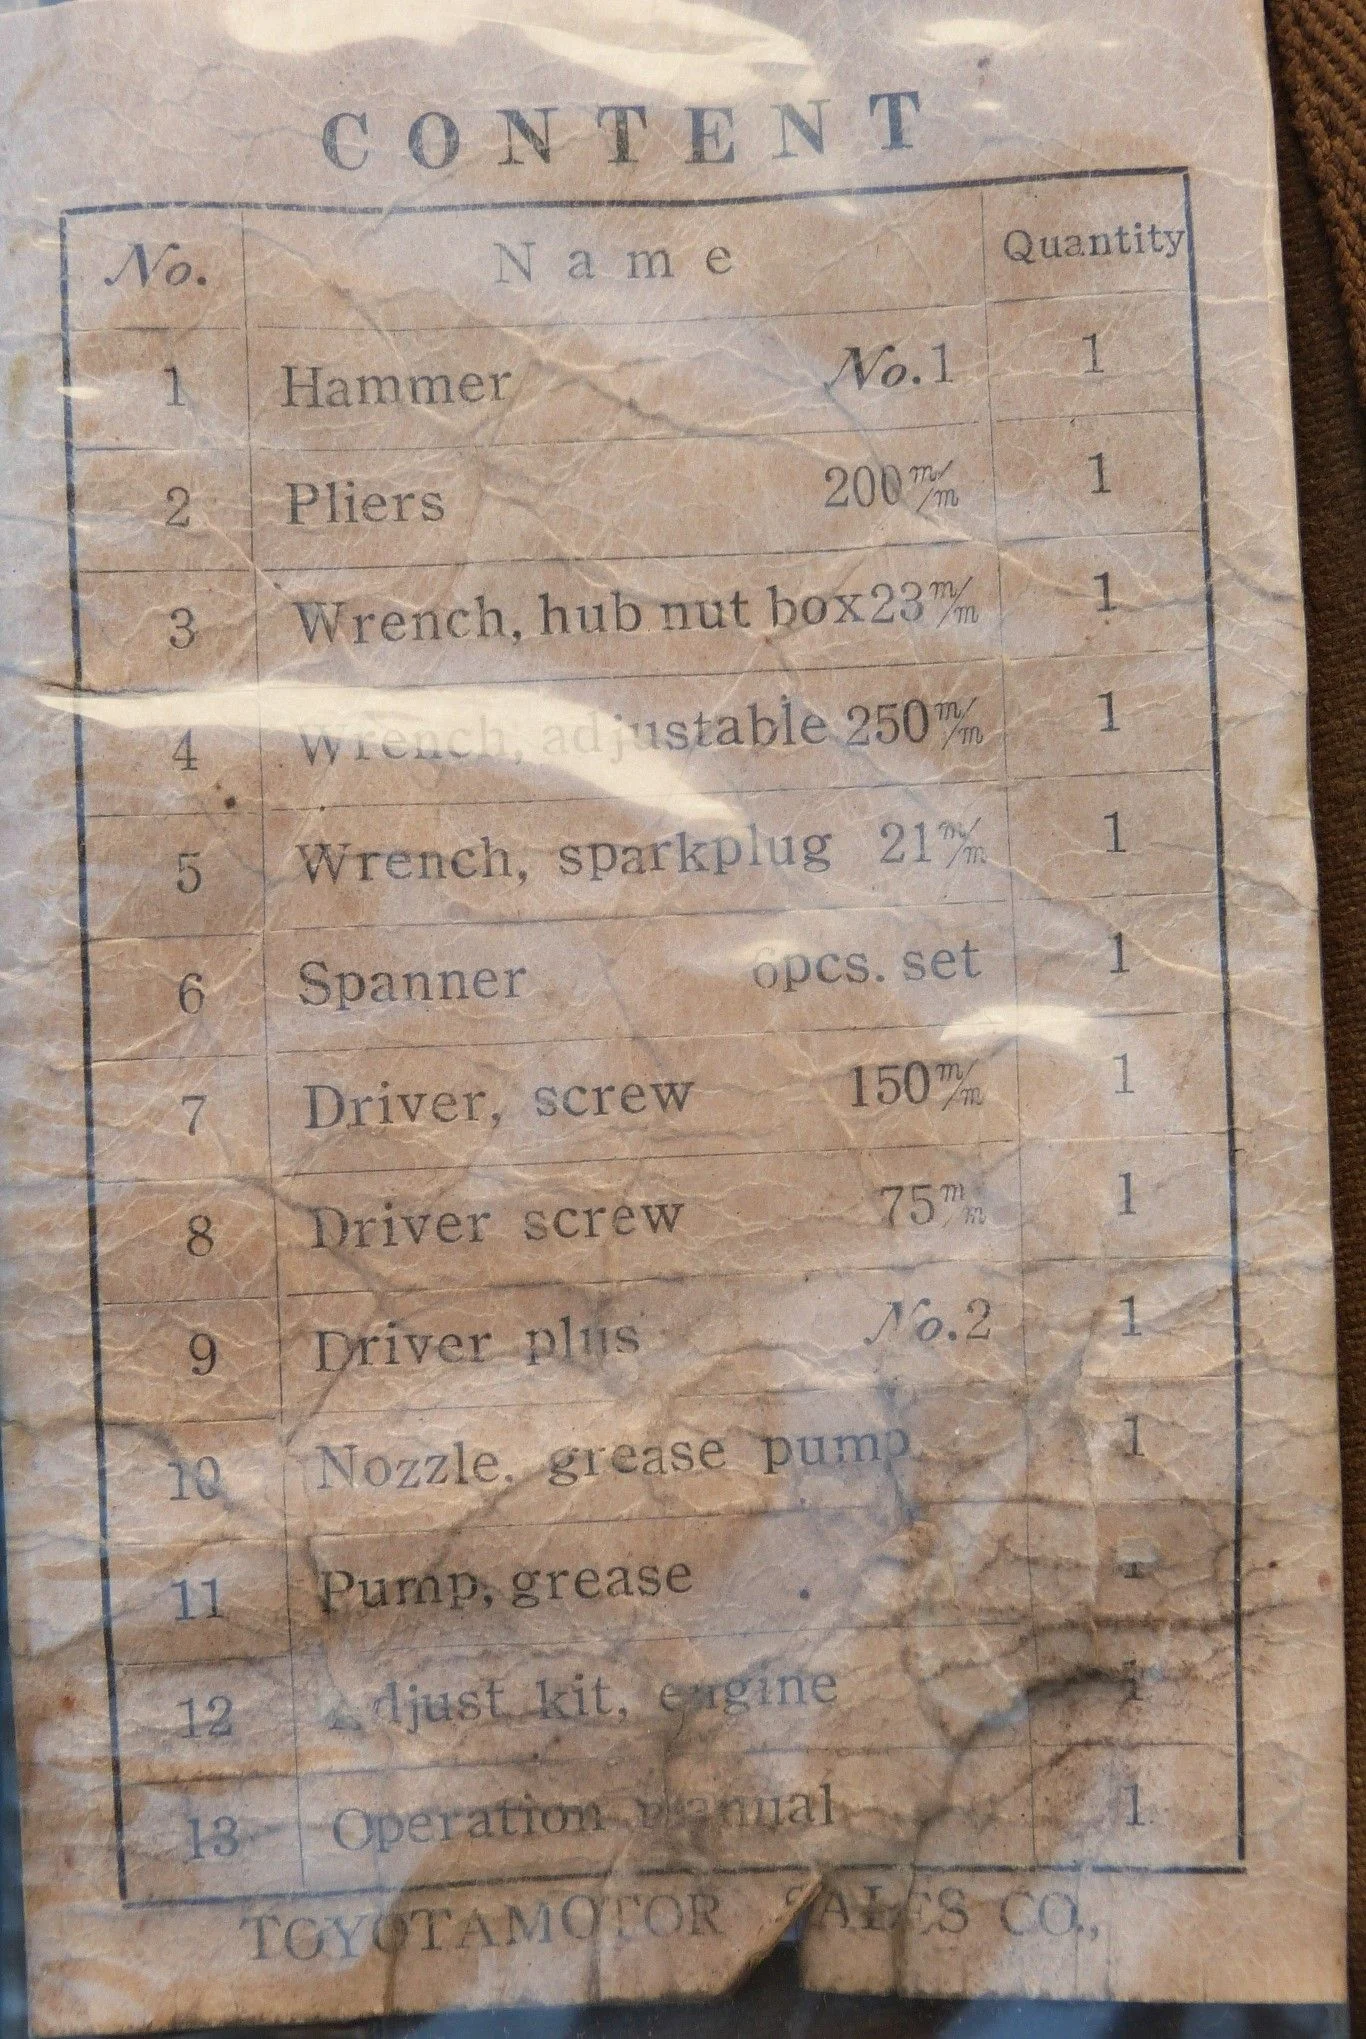 CONTENT
No. Name Quantity
1 Hammer No.1 1
2 Pliers 200 m/m 1
3 Wrench, hub nut box 23 m/m 1
4 Wrench, adjustable 250 m/m 1
5 Wrench, sparkplug 21 m/m 1
6 Spanner 6pcs. set 1
7 Driver, screw 150 m/m 1
8 Driver screw 75 m/m 1
9 Driver plus No.2 1
10 Nozzle, grease pump 1
11 Pump, grease 1
12 Adjust kit, engine 1
13 Operation manual 1
TOYOTAMOTOR SALES CO.,